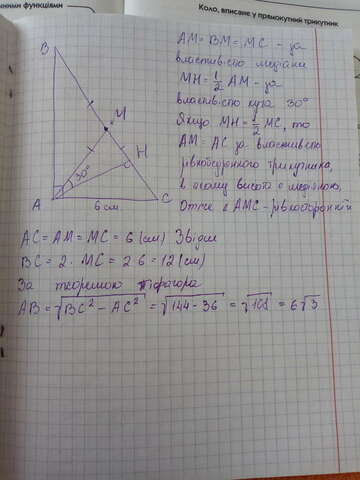 нними функціями
Коло, вписане у прямокутний трикутник
B
M
H
30°
A
6 см
C
AM = BM = MC - за
властивістю медіани
MH = 1/2 AM - за
властивістю кута 30°
Якщо MH = 1/2 MC, то
AM = AC за властивістю
рівнобедреного трикутника,
в якому висота є медіаною,
Отже △ AMC - рівносторонній
AC = AM = MC = 6 (см) Звідси
BC = 2 · MC = 2 · 6 = 12 (см)
За теоремою Піфагора
AB = √BC² - AC² = √144 - 36 = √108 = 6√3